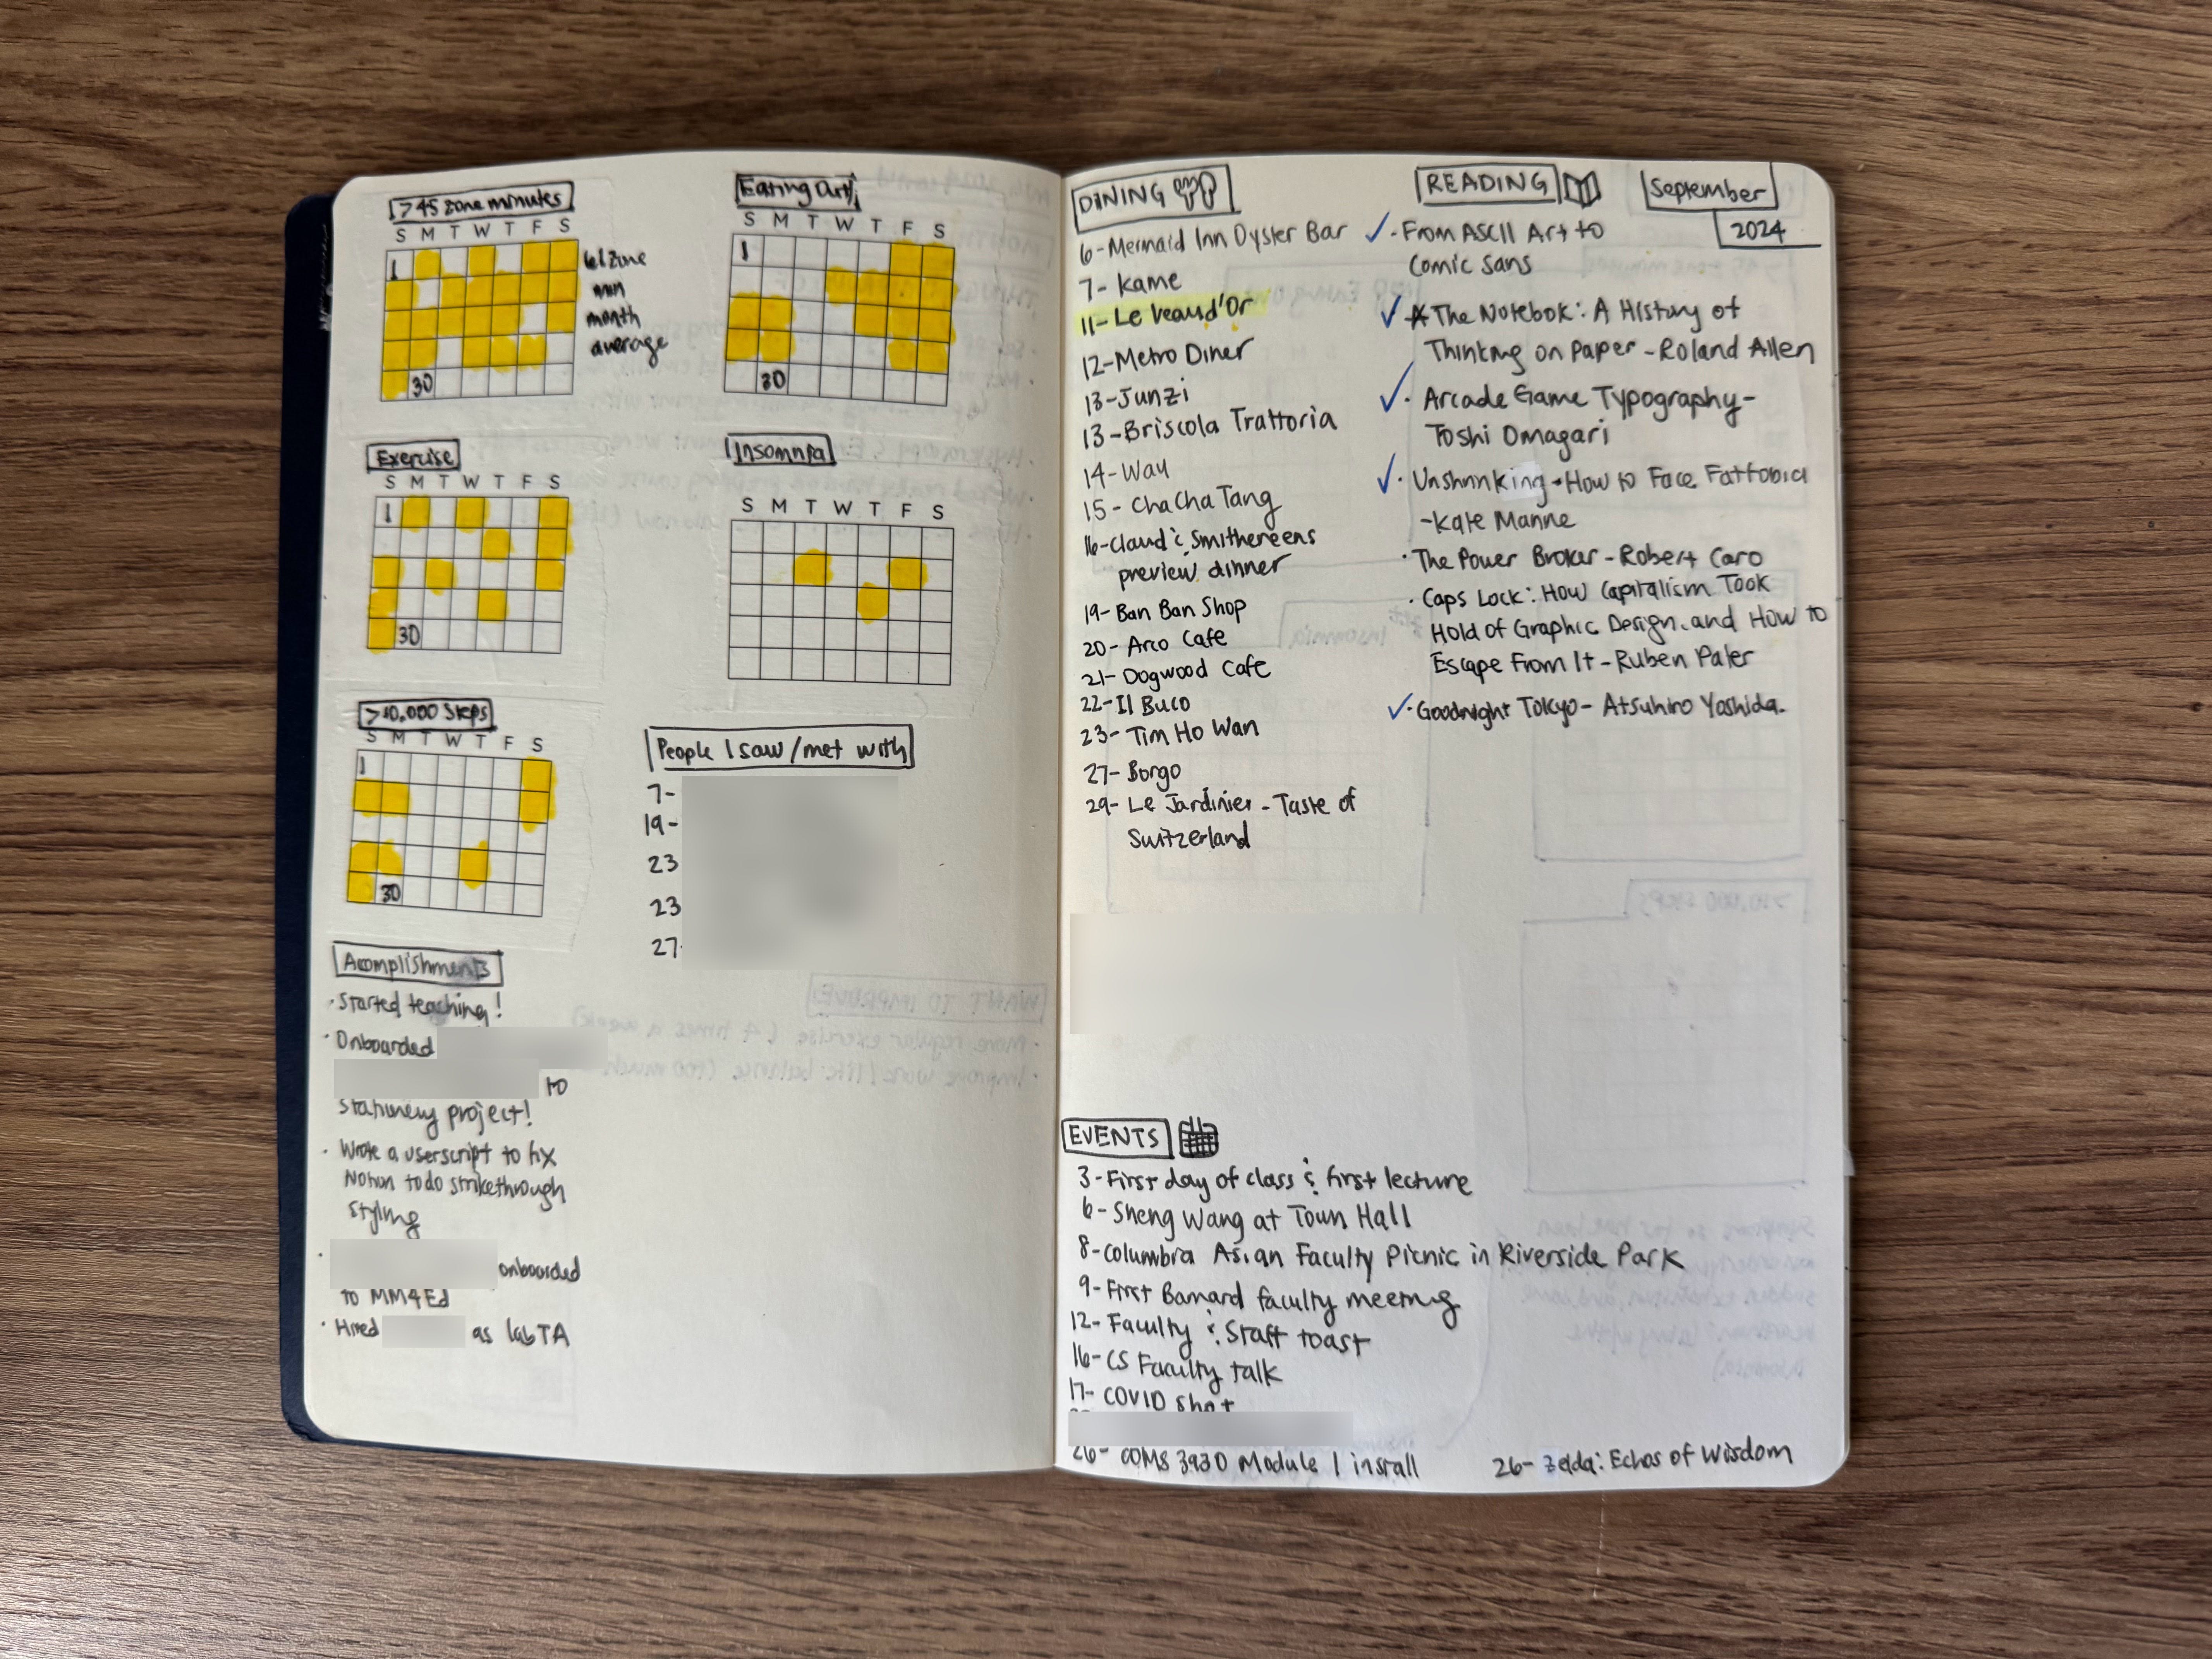 >45 zone minutes
S M T W T F S
1
30
61 zone
min
month
average
Eating Out
S M T W T F S
1
30
Exercise
S M T W T F S
1
30
Insomnia
S M T W T F S
>10,000 Steps
S M T W T F S
1
30
People I saw/met with
7-
19-
23
23
27-
Acomplishments
· Started teaching!
· Onboarded
to
stationery project!
· Wrote a userscript to fix
Notion todo strikethrough
styling
· onboarded
to MM4Ed
· Hired as lab TA
DINING
6- Mermaid Inn Oyster Bar
7- Kame
11- Le Veau d'Or
12- Metro Diner
13- Junzi
13- Briscola Trattoria
14- Wau
15- ChaCha Tang
16- Claud & Smithereens
preview dinner
19- Ban Ban Shop
20- Arco Cafe
21- Dogwood Cafe
22- Il Buco
23- Tim Ho Wan
27- Borgo
29- Le Jardinier - Taste of
Switzerland
READING
✓· From ASCII Art to
Comic Sans
✓ The Notebok: A History of
Thinking on Paper - Roland Allen
✓· Arcade Game Typography-
Toshi Omagari
✓· Unshrinking - How to Face Fatfobia
-Kate Manne
· The Power Broker - Robert Caro
· Caps Lock: How Capitalism Took
Hold of Graphic Design, and How to
Escape From It - Ruben Pater
✓· Goodnight Tokyo - Atsuhiro Yoshida.
September
2024
EVENTS
3- First day of class & first lecture
6- Sheng Wang at Town Hall
8- Columbia Asian Faculty Picnic in Riverside Park
9- First Barnard faculty meeting
12- Faculty & Staff toast
16- CS Faculty talk
17- COVID shot
26- COMS 3930 Module 1 install
26- Zelda: Echos of Wisdom